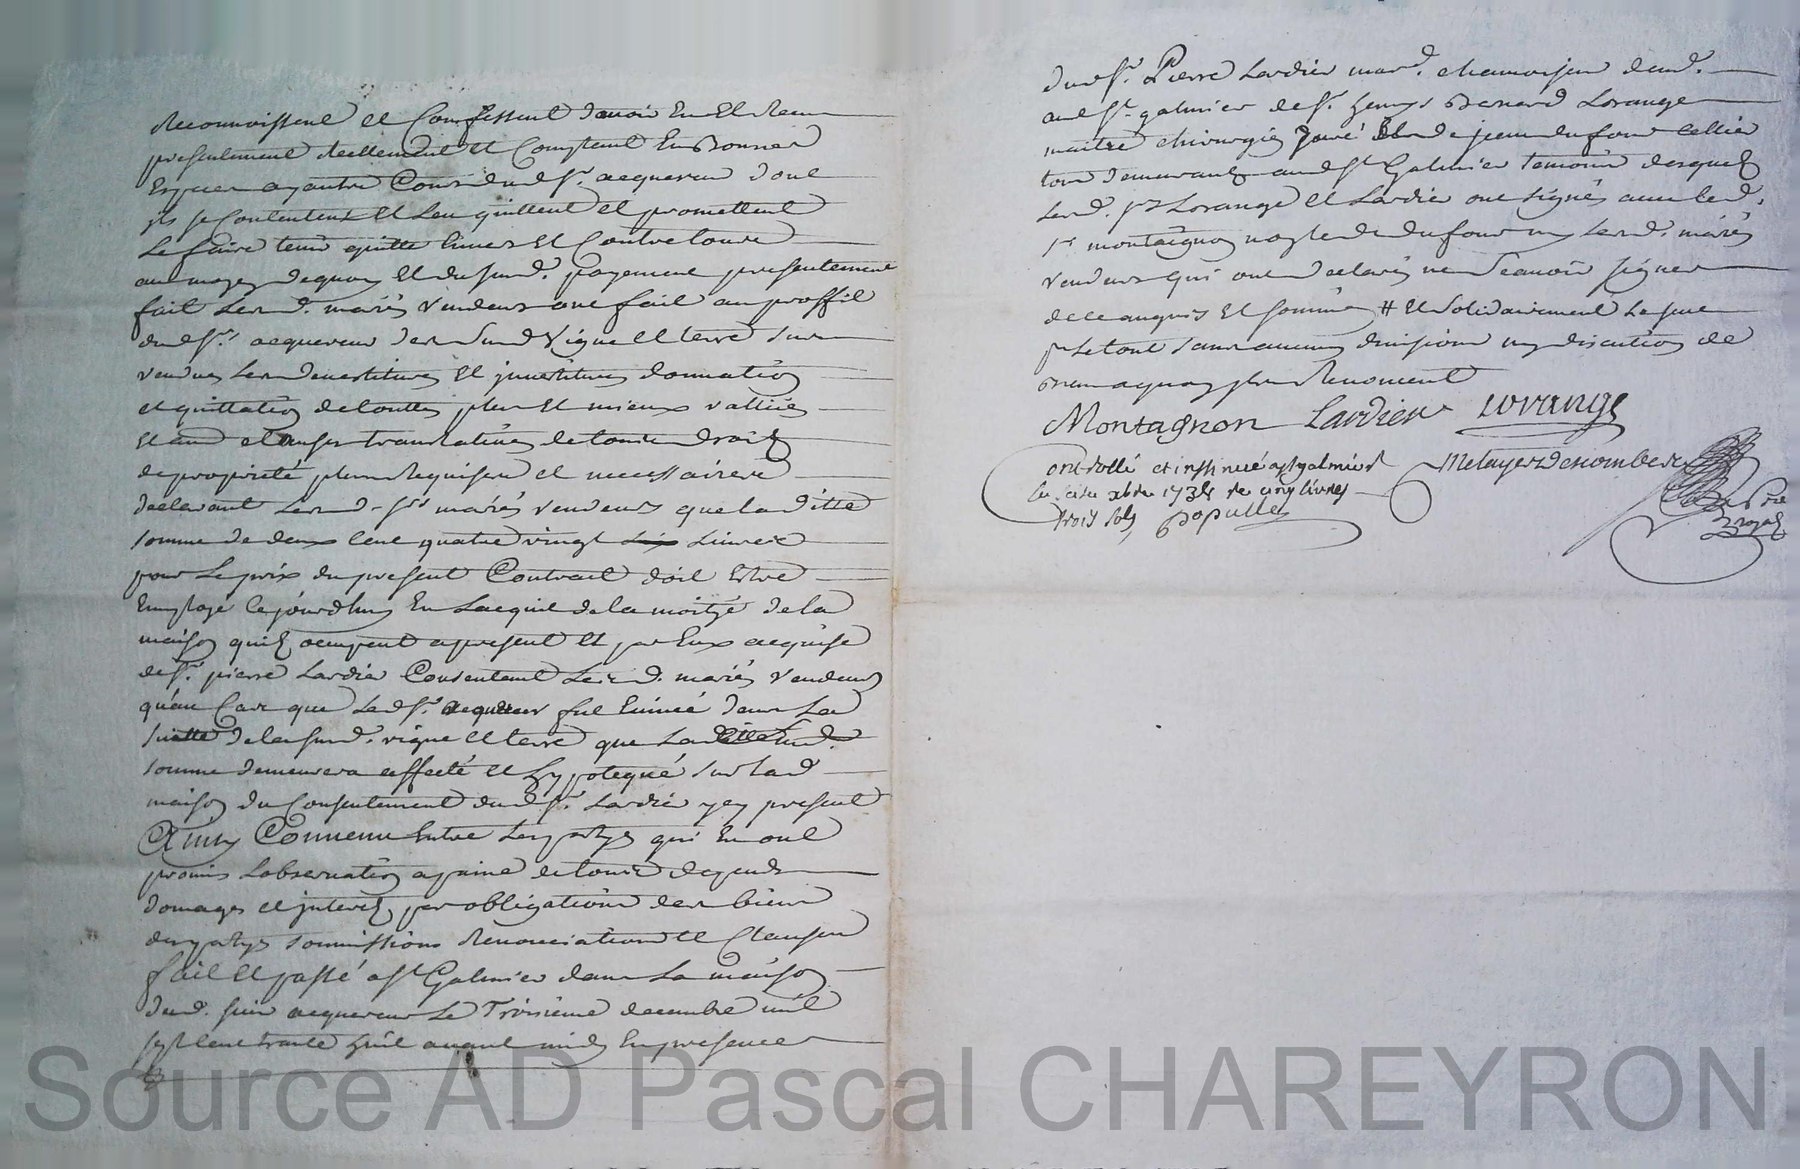 Reconnoissent et Confessent davoir Eu et Receu
presentement Reellement et Comptant En Bonnes
Especes ayantes Cours dudSr. acquereur dont
ils se Contentent et Len quittent et promettent
Le faire tenir quitte Envers Et Contre touts
au moyen dequoy Et du susd. payement presentement
fait Lesd. mariés Vendeurs ont fait au proffit
dudSr. acquereur des Susd Vigne et terre sus
vendues Les Devestitures Et jnvestitures donnation
et quittation de touttes plus Et mieux vallües
Et aud et Clauses translatives de touts droits
de proprieté plus Requises et necessaires
declarant Lesd. Srs mariés vendeurs que laditte
somme de deux Cent quatre vingt Livres
pour Le prix du present Contrait doit Estre
Employé Cejourdhuy En Lacquit de la moityé de la
maison quils occupent a present et par Eux acquise
de Sr. pierre Lardier Consentant Lesd. mariés Vendeurs
quau Cas que LedSr. acquereur fut Evincé dans La
suitte de lasusd. vigne et terre que Laditte Susd.
somme demeurera affecté et hyppotequé sur Lad
maison du Consentement dudSr. Lardier ycy present
Ainsy Convenu Entre Lesparties qui En ont
promis Lobservation apaine de touts depends
domages et jnterets par obligations des biens
desparties soumissions Renonciations et Clauses
fait Et passé a St Galmier dans La maison
dud. sieur acquereur Le Troisieme decembre mil
sept Cent trente huit avant midy En presences
dudSr. Pierre Lardier mard. chamoiseur demt.
aud St. galmier de Sr. henry Bernard Lorange
maitre chirurgien Juré Et de jean dufour cellier
tous demeurants aud St Galmier temoins desquels
Lesd. Srs Lorange et Lardier ont signés avec led.
Sr montaignon non Led. dufour ny Lesd. mariés
vendeurs qui ont declarés ne Scavoir signer
de ce enquis Et sommés # et solidairement Le seul
pr Le tout sans aucune division ny discution de
biens aquoy ils Renoncent
Montagnon Lardier Lorange
controllé et insinué a st galmier Metayer Descombes
Le seize xbre 1738 Re cinq livres
trois sols, Populle
Nre
Royal
Source AD Pascal CHAREYRON